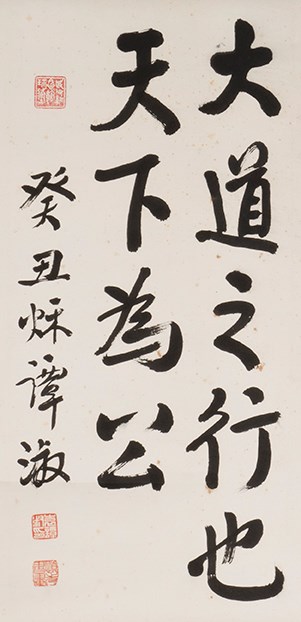 大道之行也
天下為公
癸丑秌譚淑